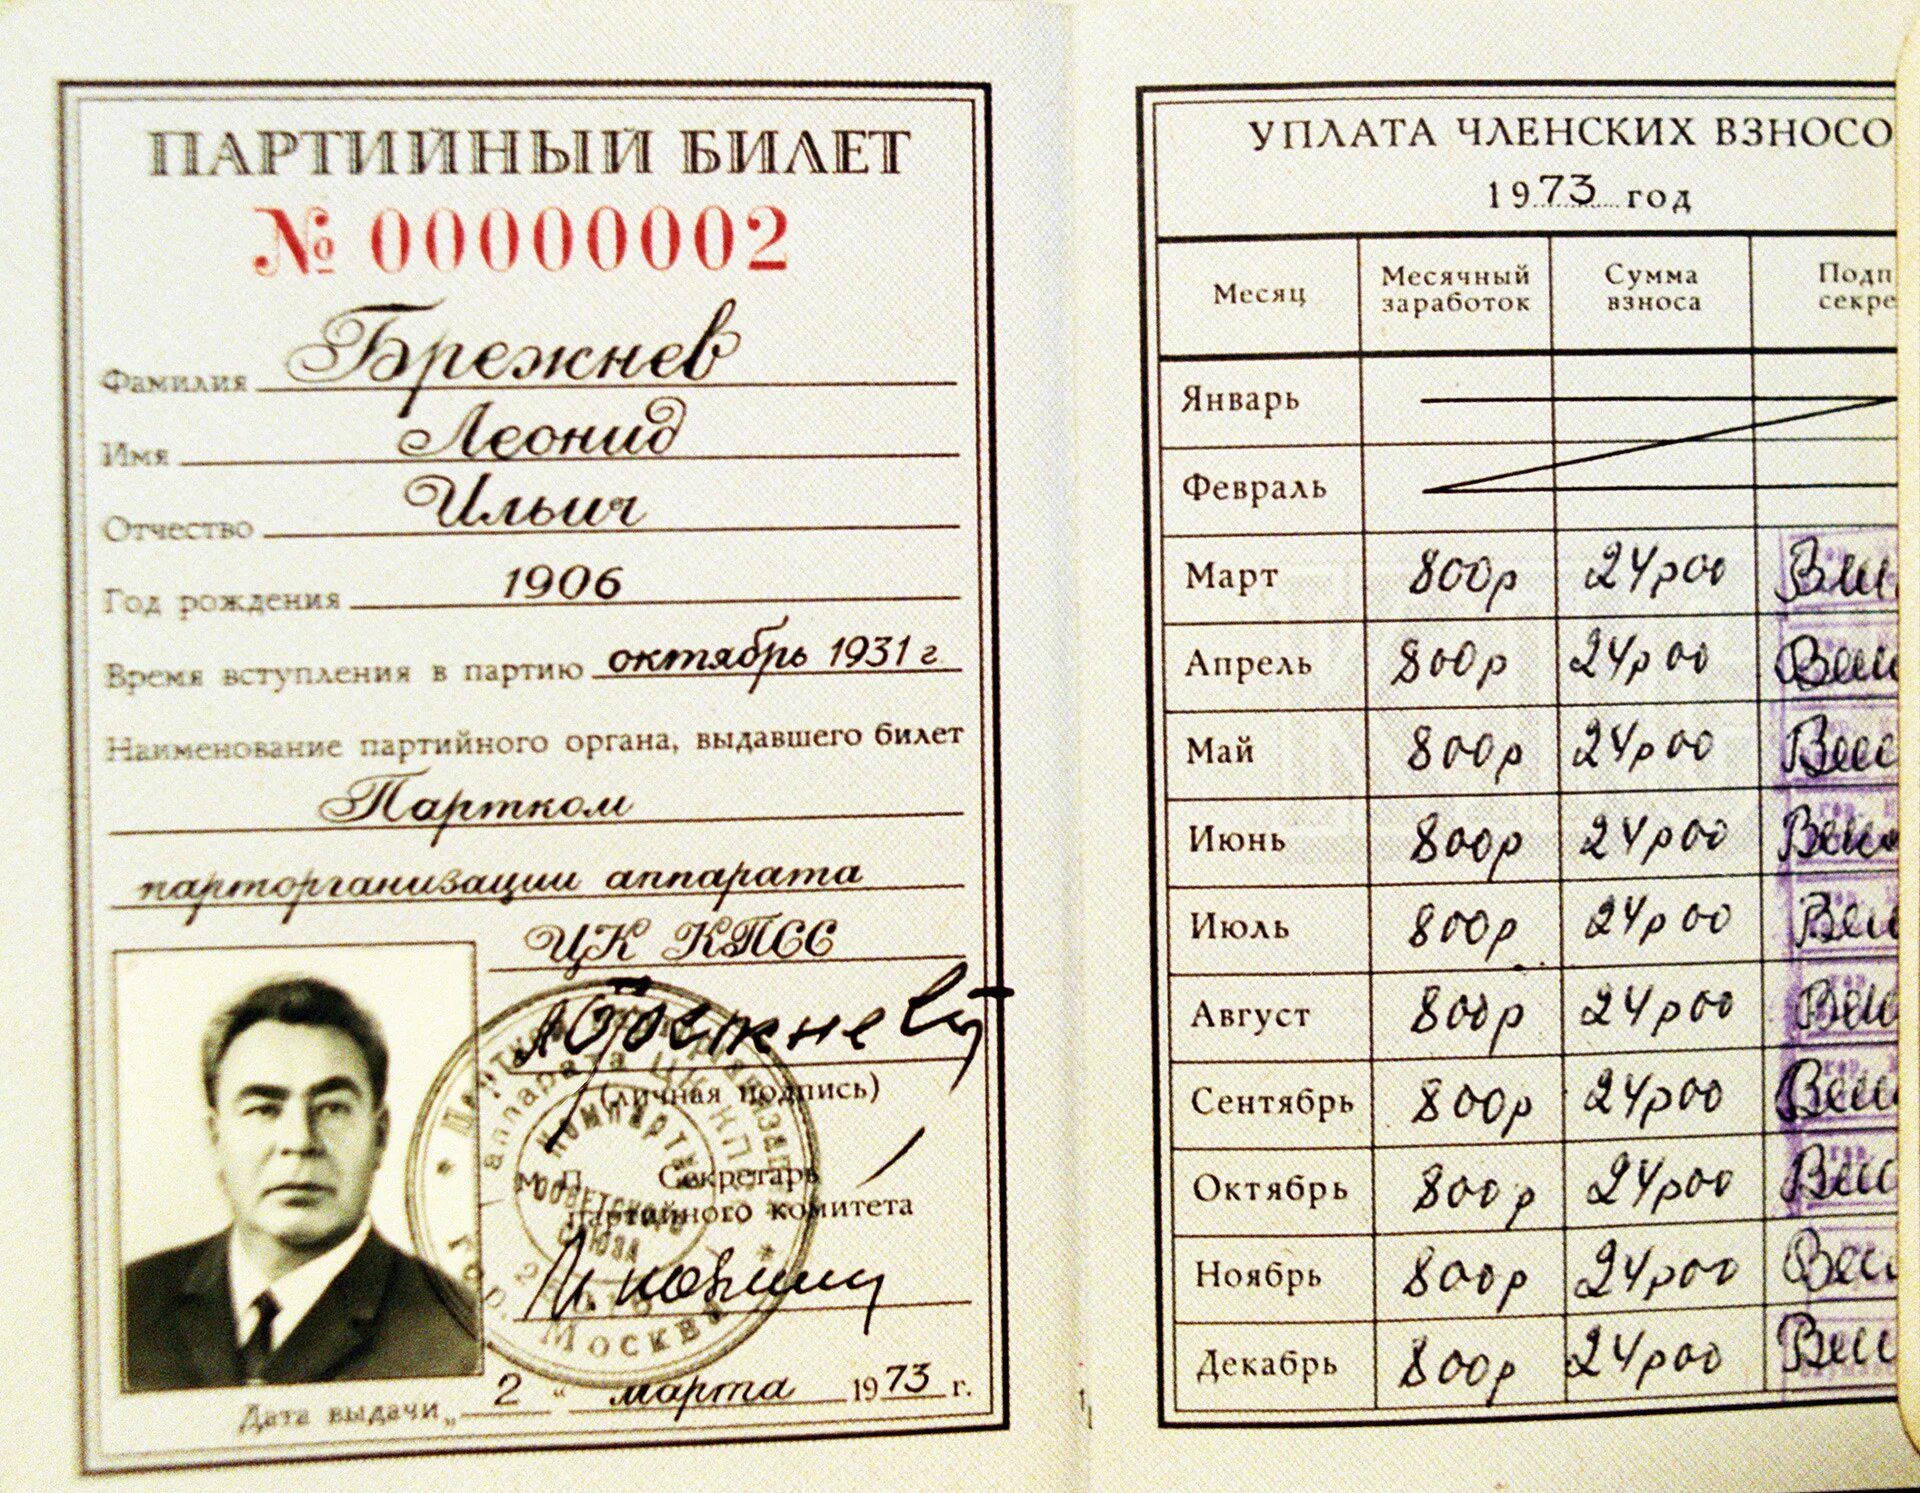 ПАРТИЙНЫЙ БИЛЕТ
№ 00000002
Фамилия Брежнев
Имя Леонид
Отчество Ильич
Год рождения 1906
Время вступления в партию октябрь 1931 г
Наименование партийного органа, выдавшего билет
Партком
парторганизации аппарата
ЦК КПСС
(личная подпись)
М. П. Секретарь
партийного комитета
Дата выдачи „ 2 “ марта 1973 г.
аппарата ЦК КП
компартия
Советского
Союза
гор. Москва
УПЛАТА ЧЛЕНСКИХ ВЗНОСО
1973 год
Месяц Месячный заработок Сумма взноса Подп секре
Январь
Февраль
Март 800р 24р00
Апрель 800р 24р00
Май 800р 24р00
Июнь 800р 24р00
Июль 800р 24р00
Август 800р 24р00
Сентябрь 800р 24р00
Октябрь 800р 24р00
Ноябрь 800р 24р00
Декабрь 800р 24р00